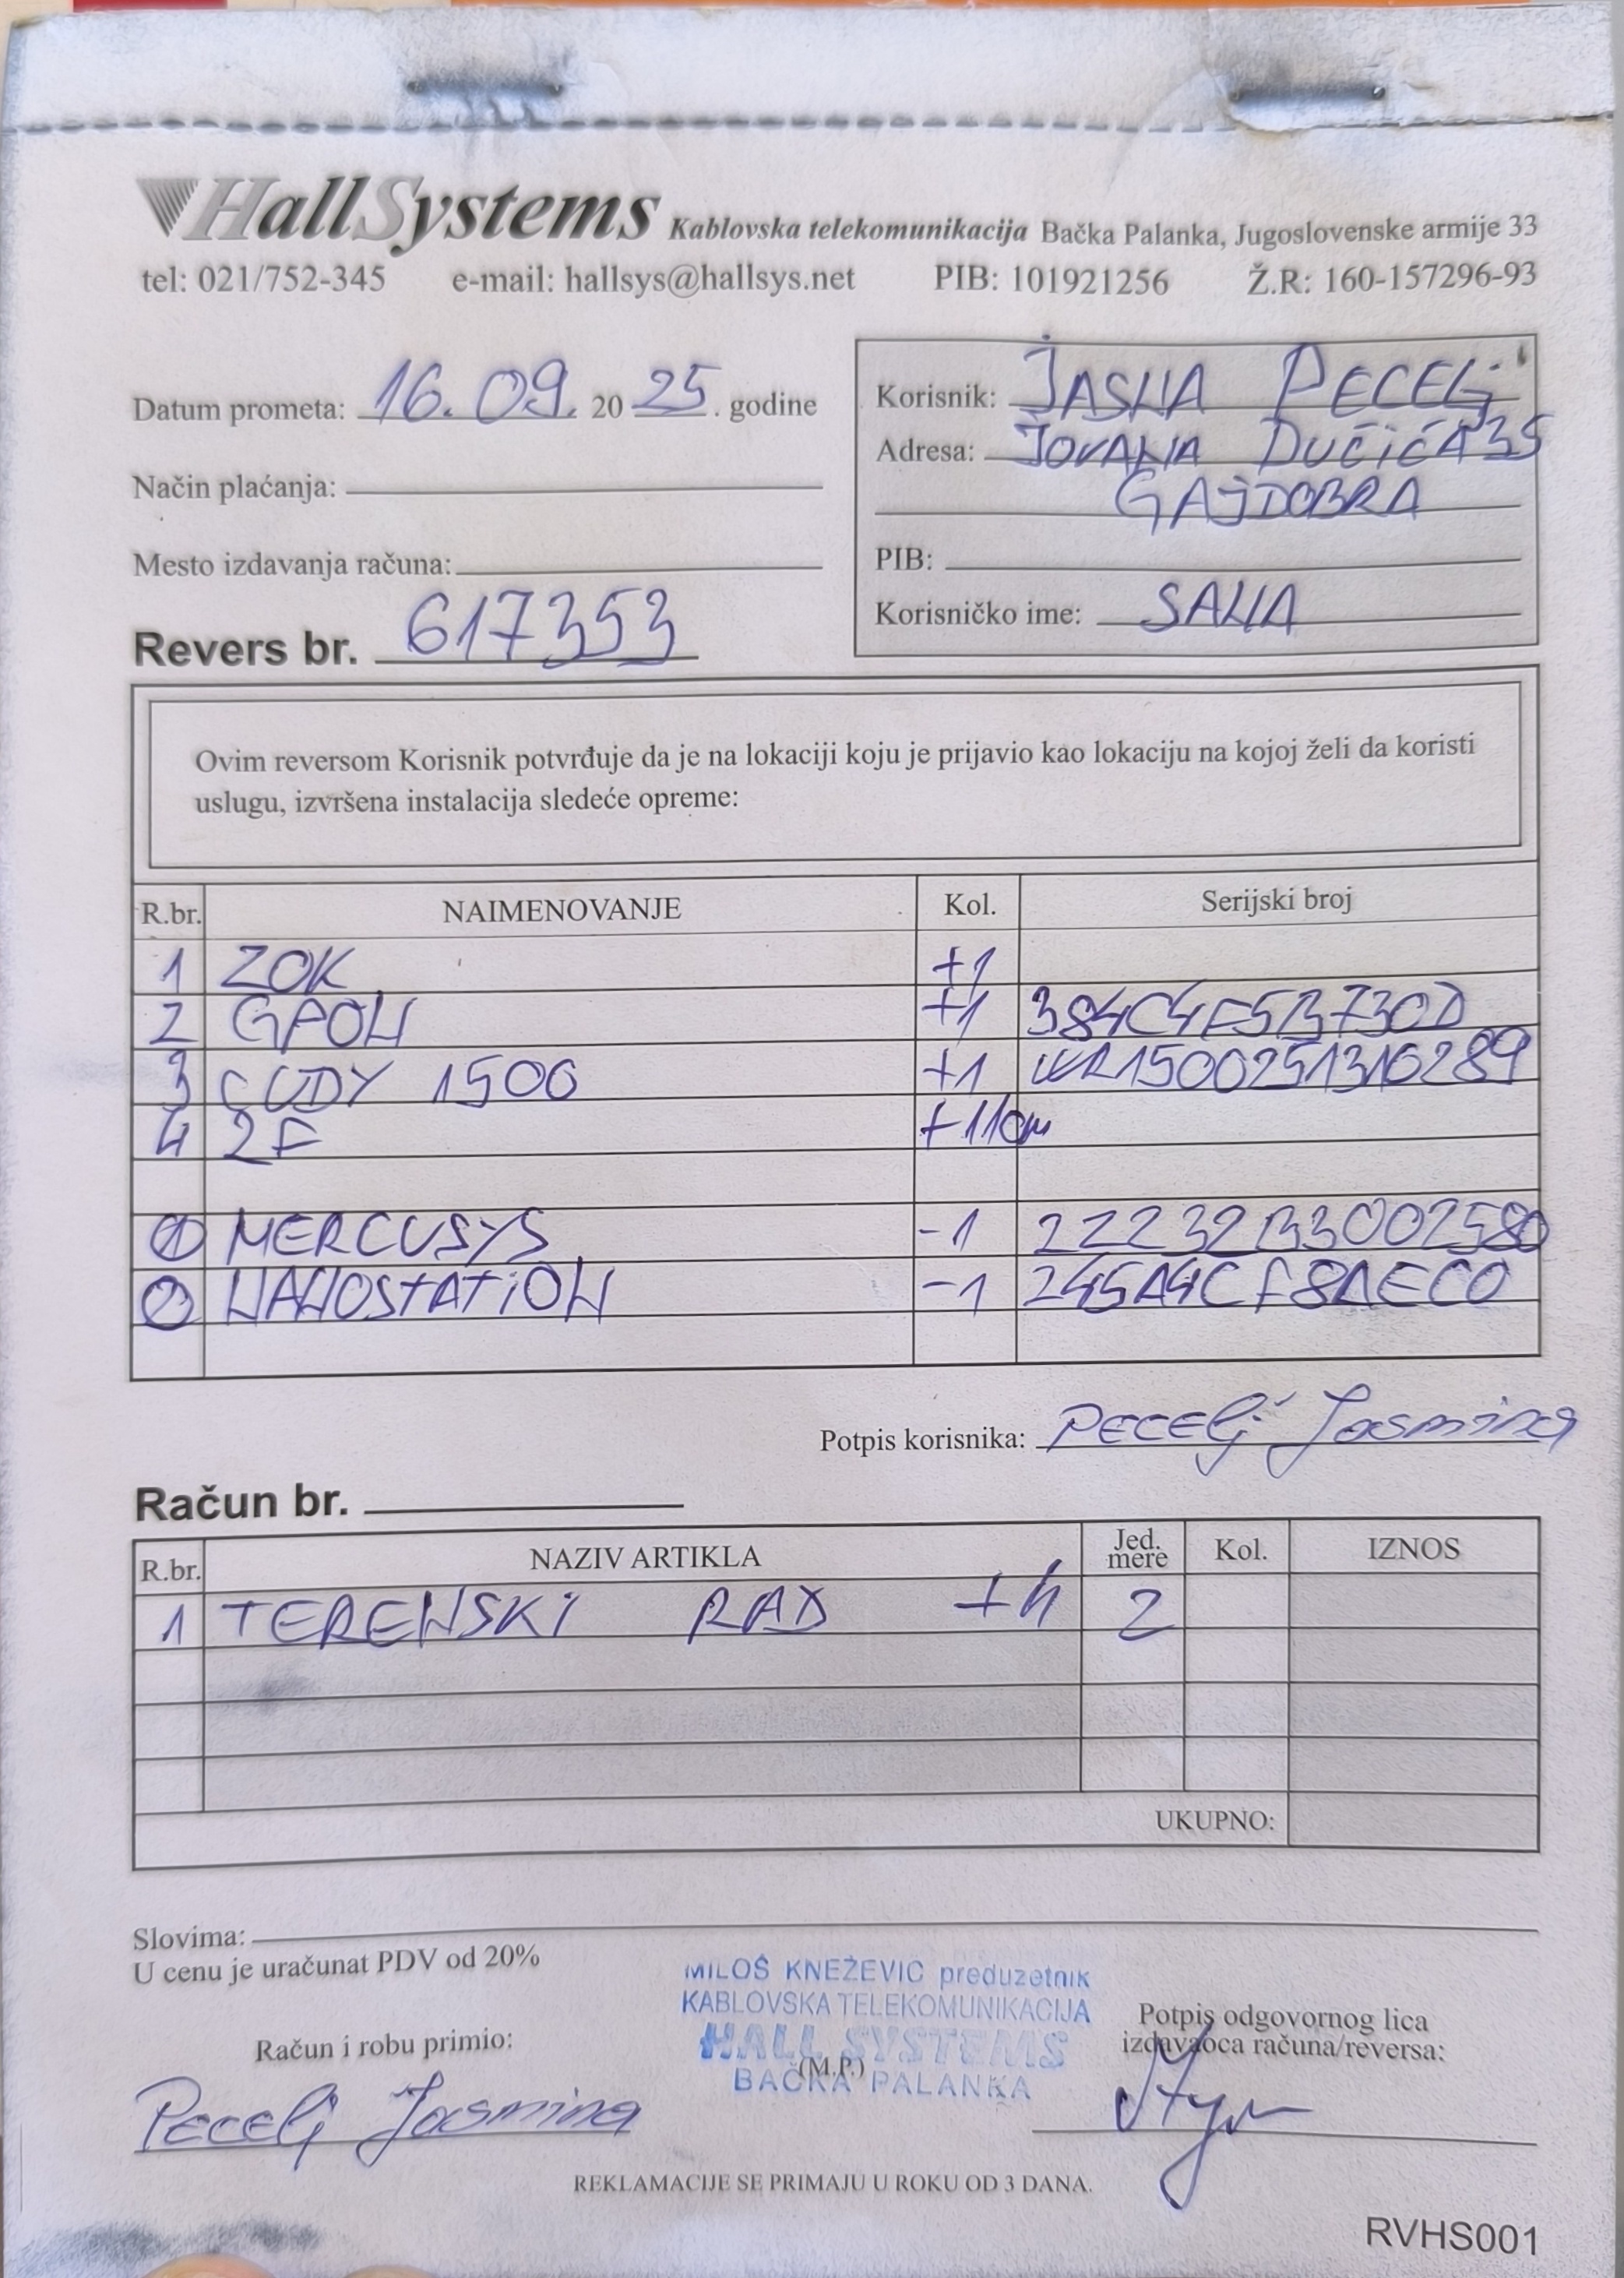 HallSystems Kablovska telekomunikacija Bačka Palanka, Jugoslovenske armije 33
tel: 021/752-345 e-mail: hallsys@hallsys.net PIB: 101921256 Ž.R: 160-157296-93
Datum prometa: 16.09. 20 25. godine
Način plaćanja:
Mesto izdavanja računa:
Revers br. 617353
Korisnik: JASNA PECELJ
Adresa: JOVANA DUČIĆA 35
GAJDOBRA
PIB:
Korisničko ime: SANA
Ovim reversom Korisnik potvrđuje da je na lokaciji koju je prijavio kao lokaciju na kojoj želi da koristi
uslugu, izvršena instalacija sledeće opreme:
R.br. NAIMENOVANJE Kol. Serijski broj
1 ZOK +1
2 GPON +1 384C4F5B730D
3 CUDY 1500 +1 WR1500251310289
4 2F +110m
1 MERCUSYS -1 22232B3002580
2 NANOSTATION -1 245A4CF8AEC0
Potpis korisnika: PECELJ Jasmina
Račun br.
R.br. NAZIV ARTIKLA Jed. mere Kol. IZNOS
1 TERENSKI RAD +h 2
UKUPNO:
Slovima:
U cenu je uračunat PDV od 20%
MILOŠ KNEŽEVIĆ preduzetnik
KABLOVSKA TELEKOMUNIKACIJA
HALL SYSTEMS
(M.P.)
BAČKA PALANKA
Račun i robu primio:
PECELJ Jasmina
Potpis odgovornog lica
izdavaoca računa/reversa:
REKLAMACIJE SE PRIMAJU U ROKU OD 3 DANA.
RVHS001